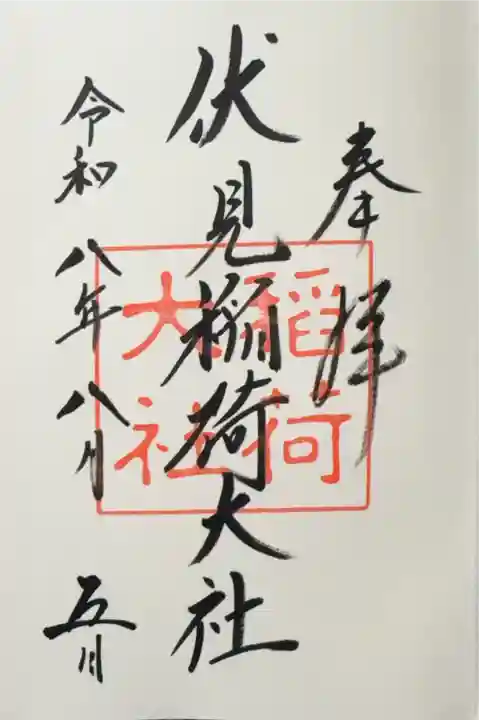 奉拝
伏見稲荷大社
令和八年八月五日
稲荷
大社